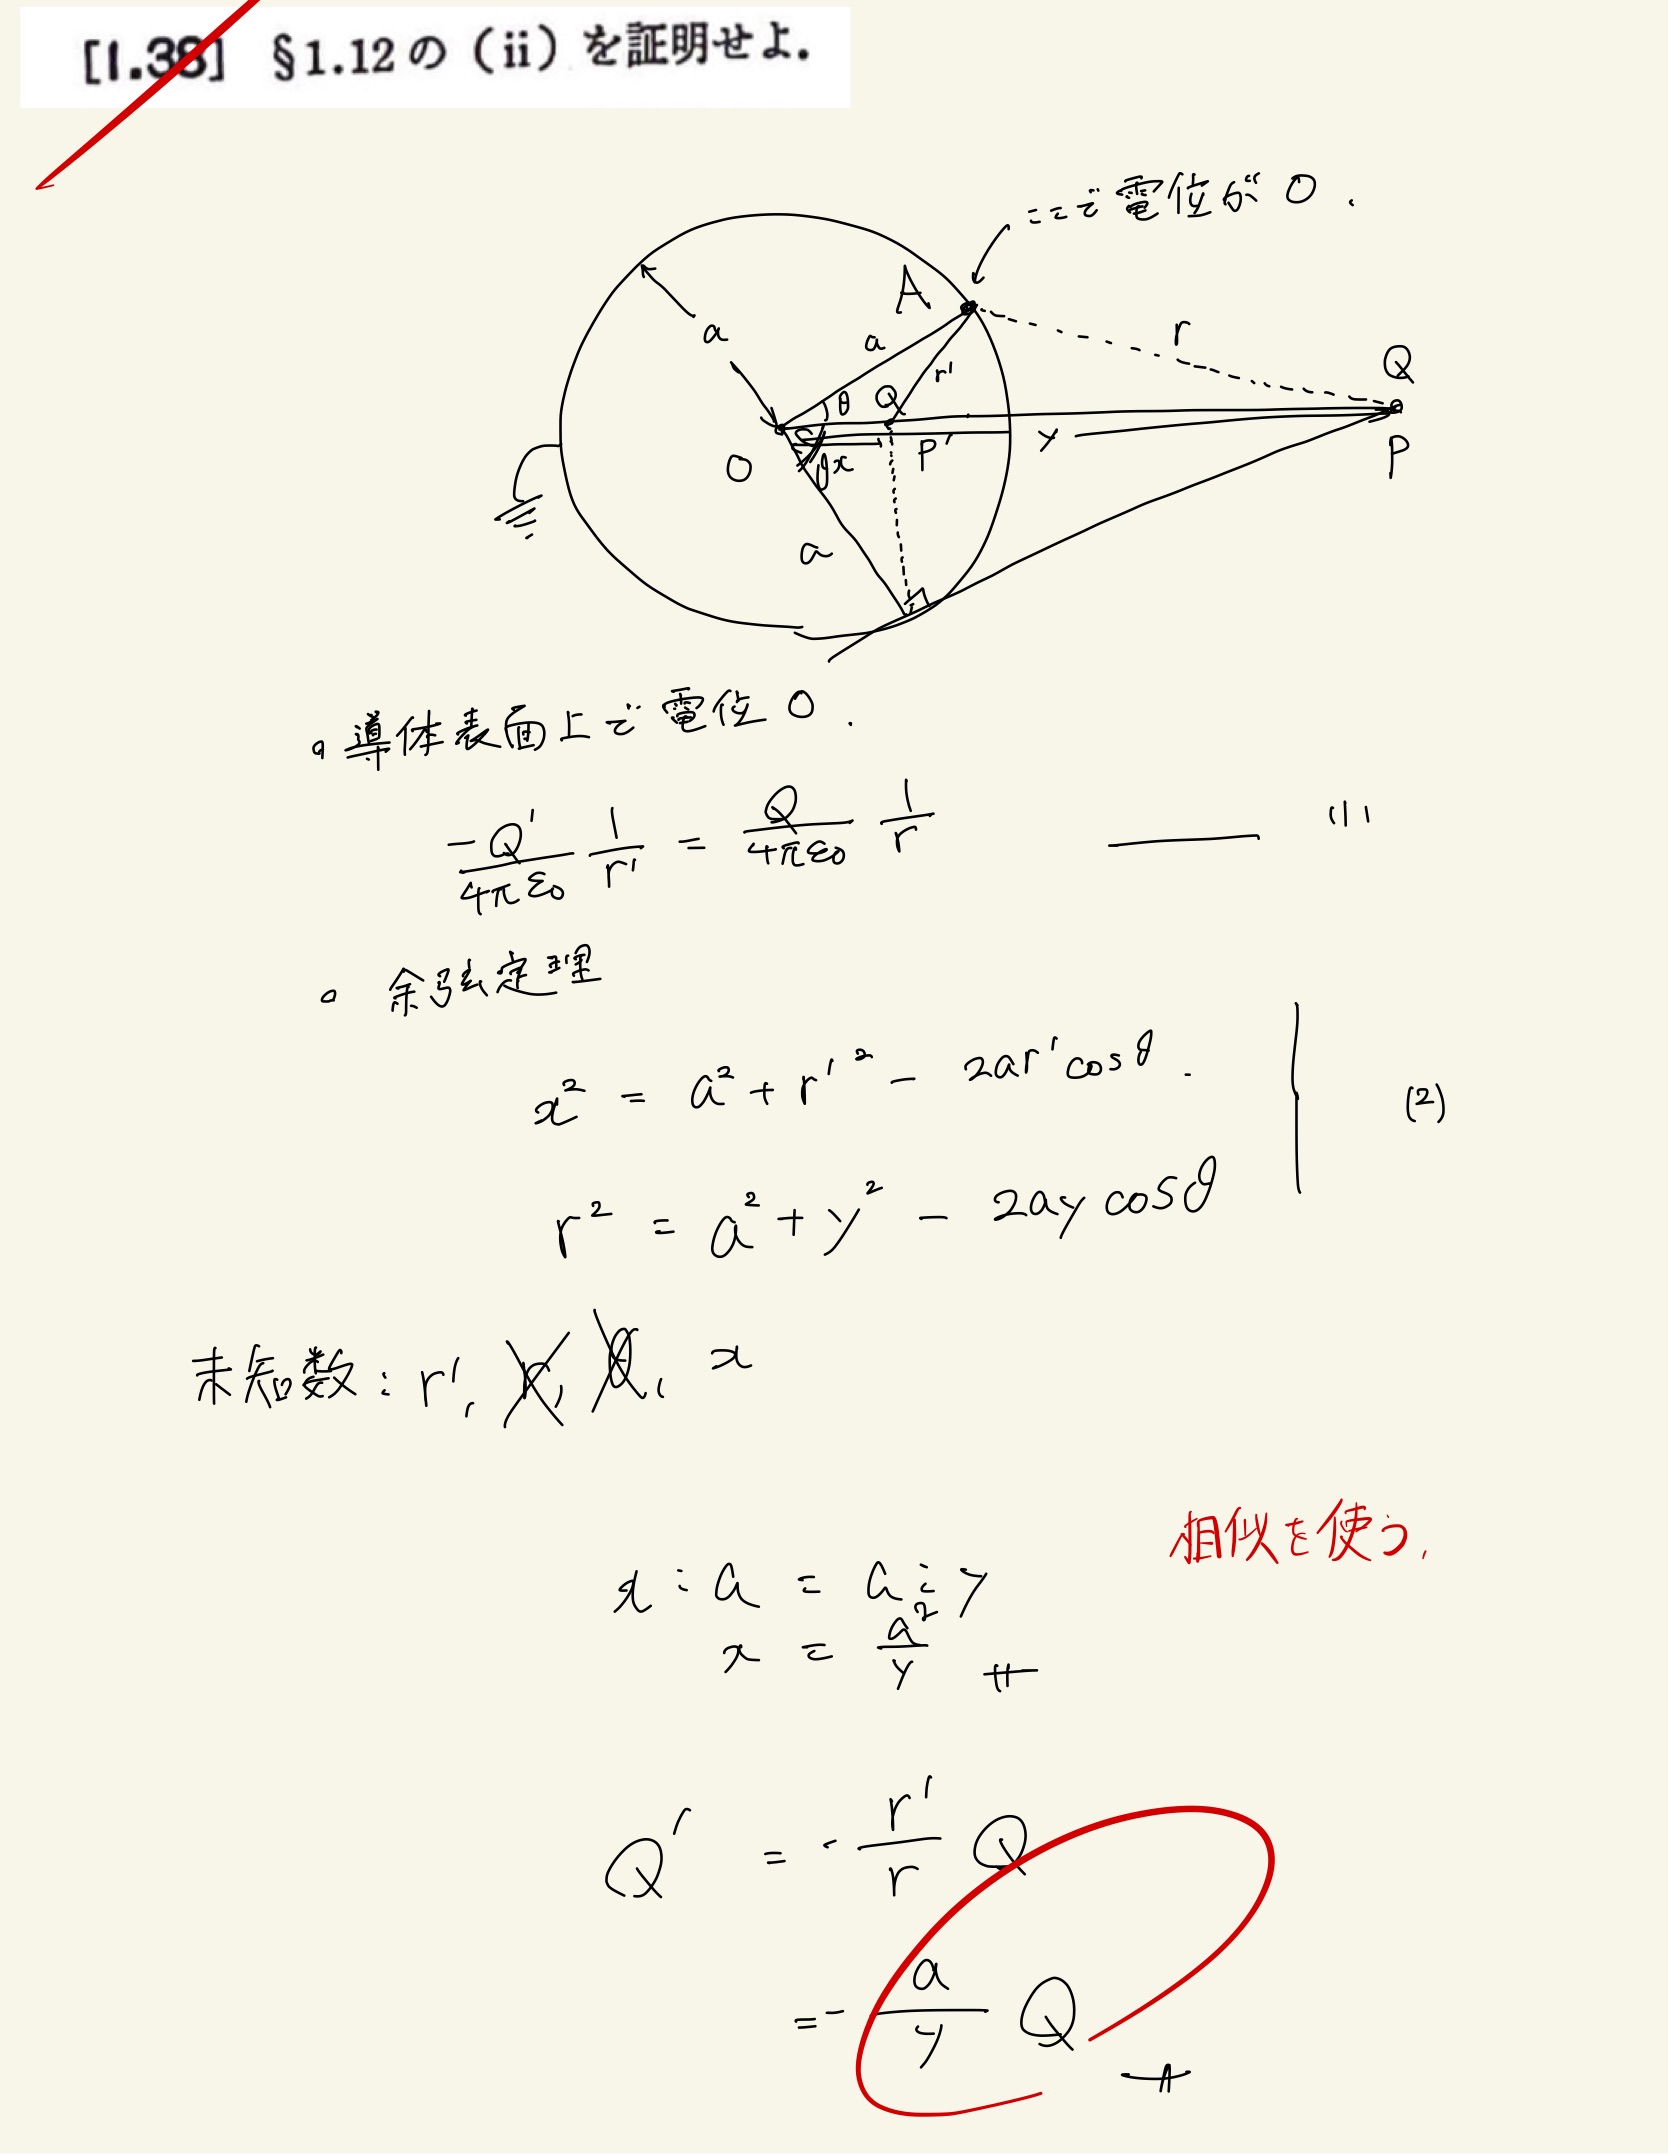 [1.38] §1.12の（ii）を証明せよ．
ここで電位が0.
A
a
a
r
r'
θ
Q
Q
P
P'
y
O
θ
x
a
・導体表面上で電位0.
-Q'/4πε0 1/r' = Q/4πε0 1/r ―― (1)
・余弦定理
x² = a² + r'² - 2ar'cosθ.
(2)
r² = a² + y² - 2ay cosθ
未知数: r', r, θ, x
相似を使う.
x : a = a : y
x = a²/y
Q' = - r'/r Q
= - a/y Q